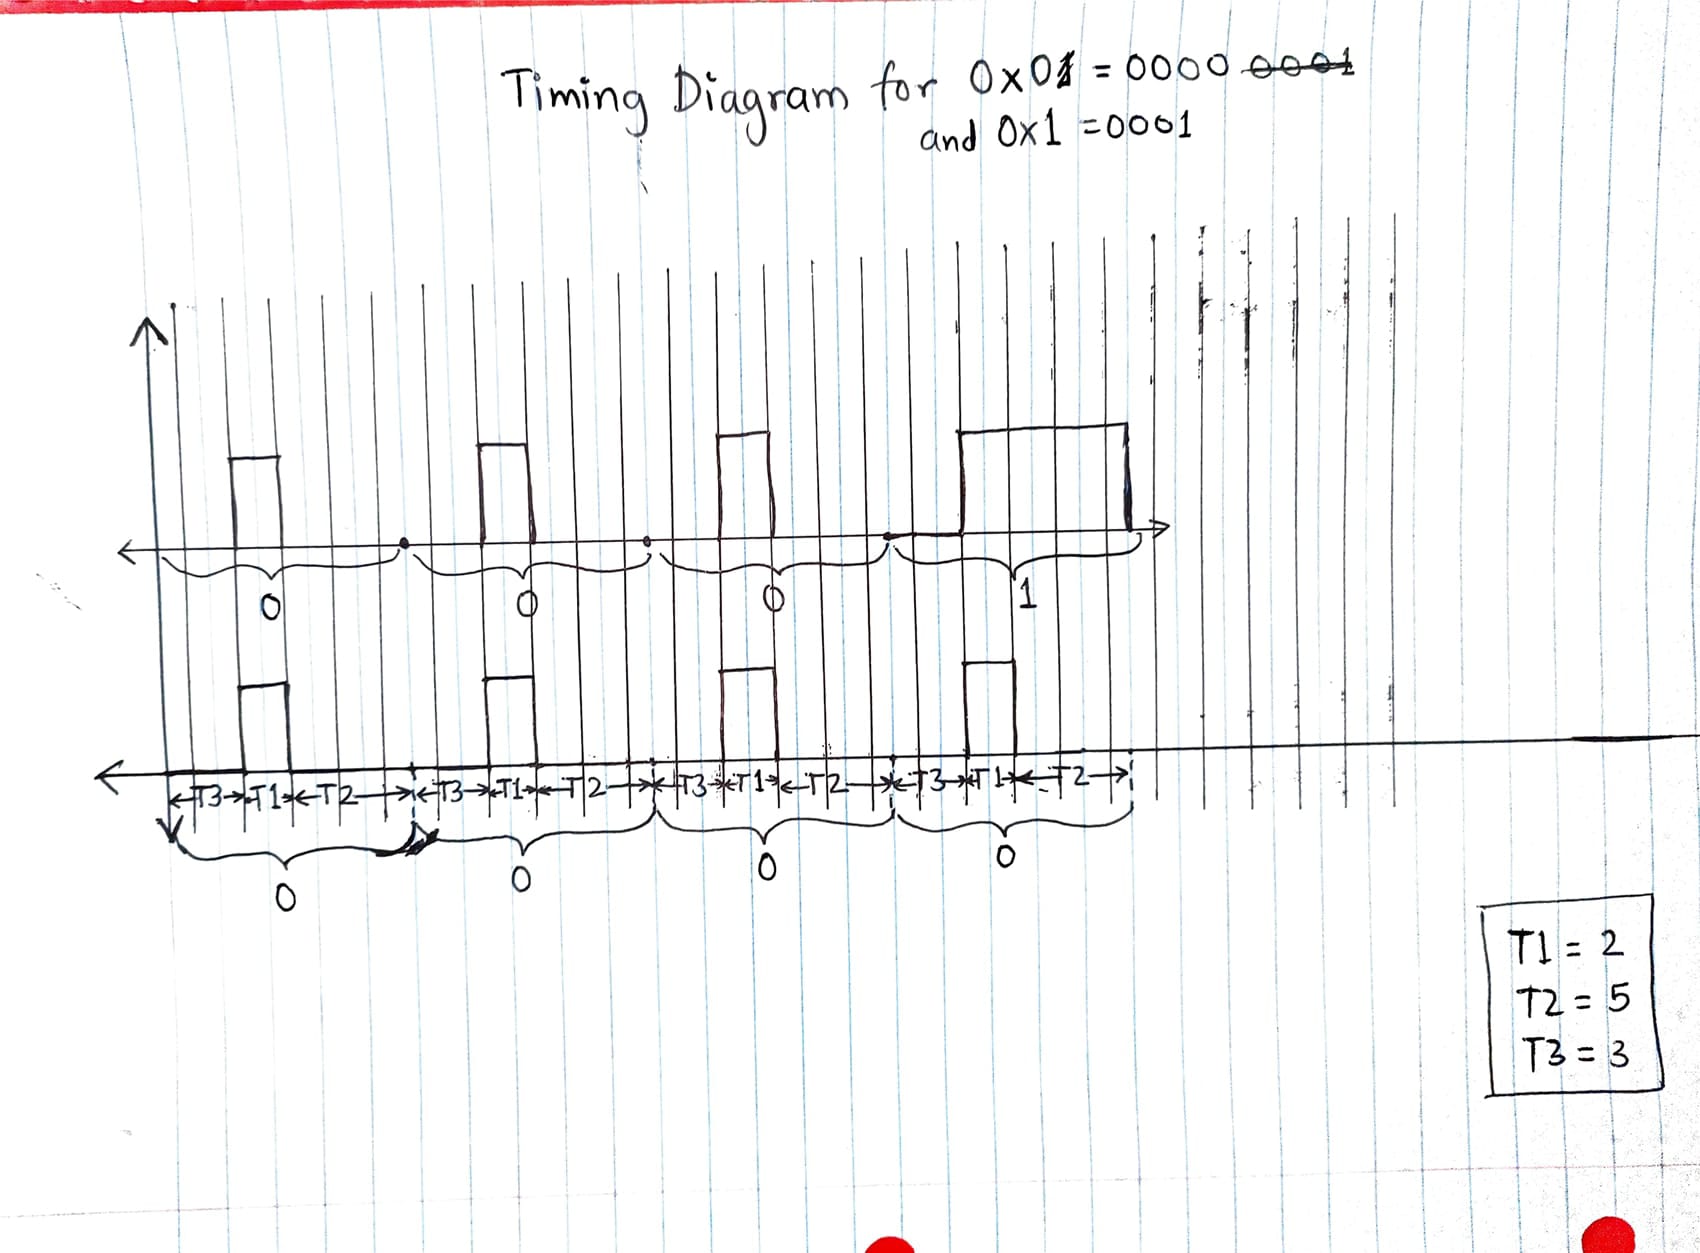 Timing Diagram for 0x01 = 0000 0001
and 0x1 = 0001
0 0 0 1
T3 T1 T2 T3 T1 T2 T3 T1 T2 T3 T1 T2
0 0 0 0
T1 = 2
T2 = 5
T3 = 3